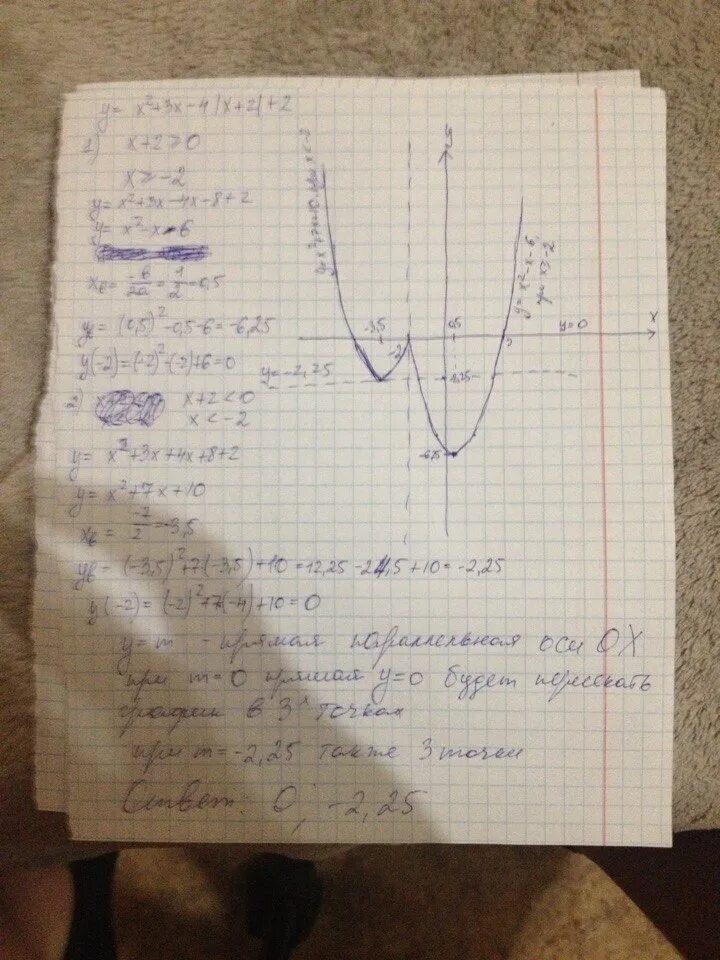 y= x²+3x-4|x+2|+2
1) x+2≥0
x≥-2
y= x²+3x-4x-8+2
y= x²-x-6
xв= -b/2a = 1/2 = 0,5
yв= (0,5)²-0,5-6=-6,25
y(-2)=(-2)²-(-2)+6=0
2) x+2<0
x<-2
y= x²+3x+4x+8+2
y= x²+7x+10
xв= -7/2 =-3,5
yв= (-3,5)²+7(-3,5)+10=12,25-24,5+10=-2,25
y(-2)= (-2)²+7(-4)+10=0
y=x²+7x+10, при x<-2
y=x²-x-6,
при x≥-2
x
-3,5
-2
0,5
3
y=0
y=-2,25
y=m - прямая параллельная оси OX
при m=0 прямая y=0 будет пересекать
график в 3х точках
при m=-2,25 также 3 точки
Ответ: 0; -2,25